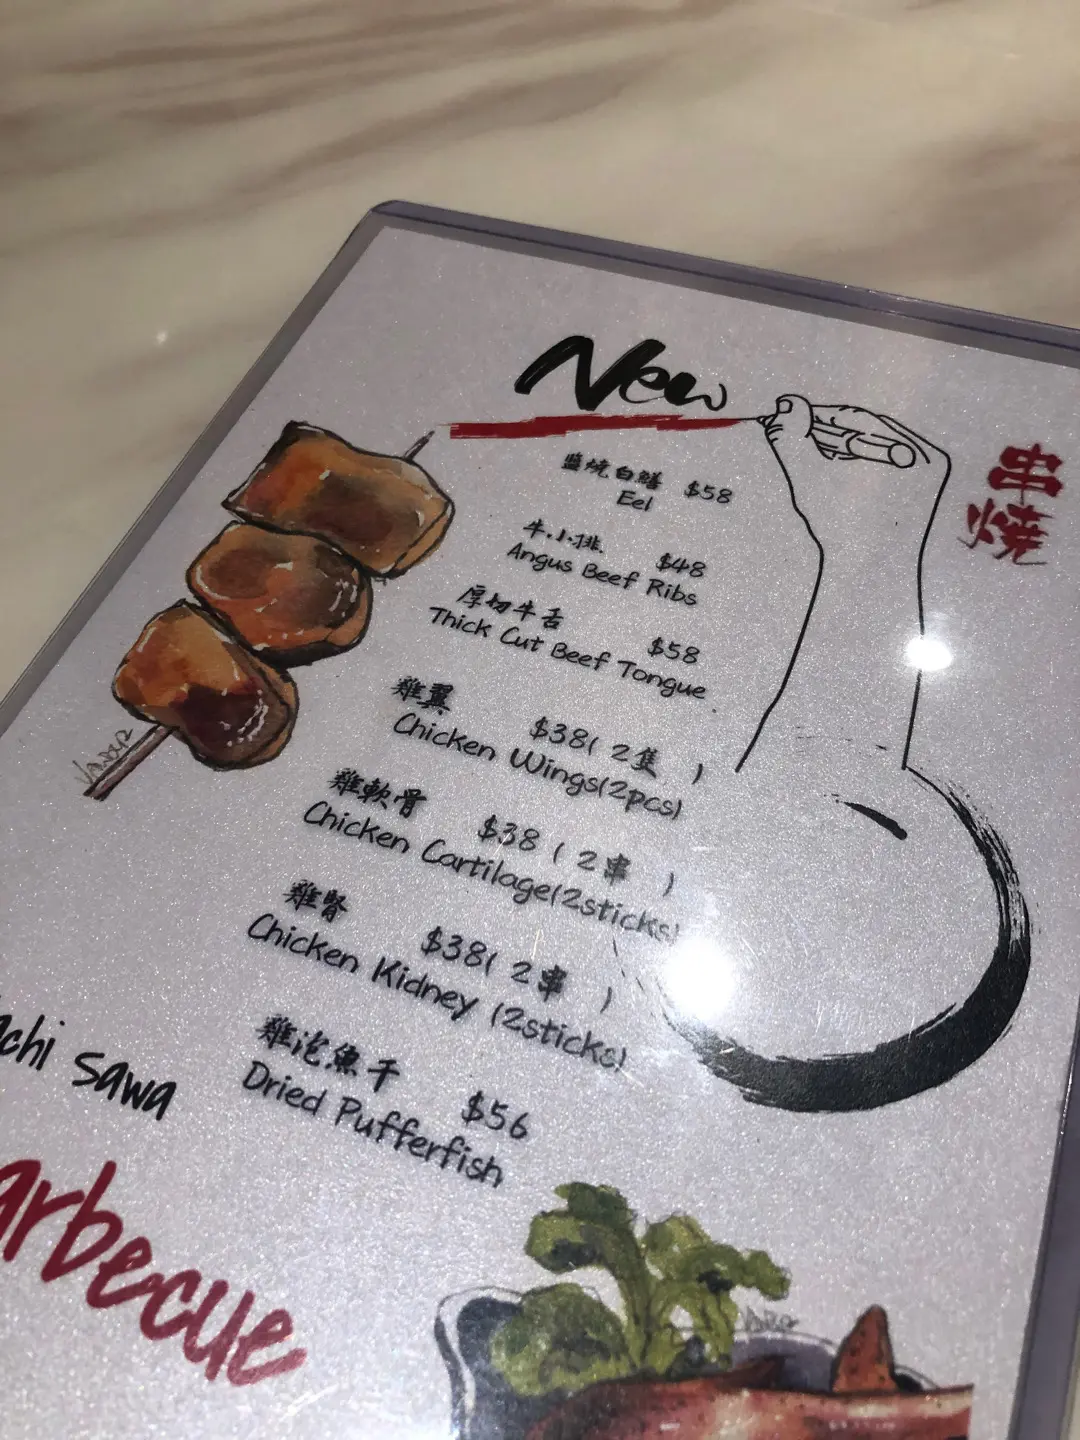 New
串
燒
鹽燒白鱔 $58
Eel
牛小排 $48
Angus Beef Ribs
厚切牛舌 $58
Thick Cut Beef Tongue
雞翼 $38( 2隻 )
Chicken Wings(2pcs)
雞軟骨 $38 ( 2串 )
Chicken Cartilage(2sticks)
雞腎 $38( 2串 )
Chicken Kidney (2sticks)
雞泡魚干 $56
Dried Pufferfish
achi sawa
arbecue